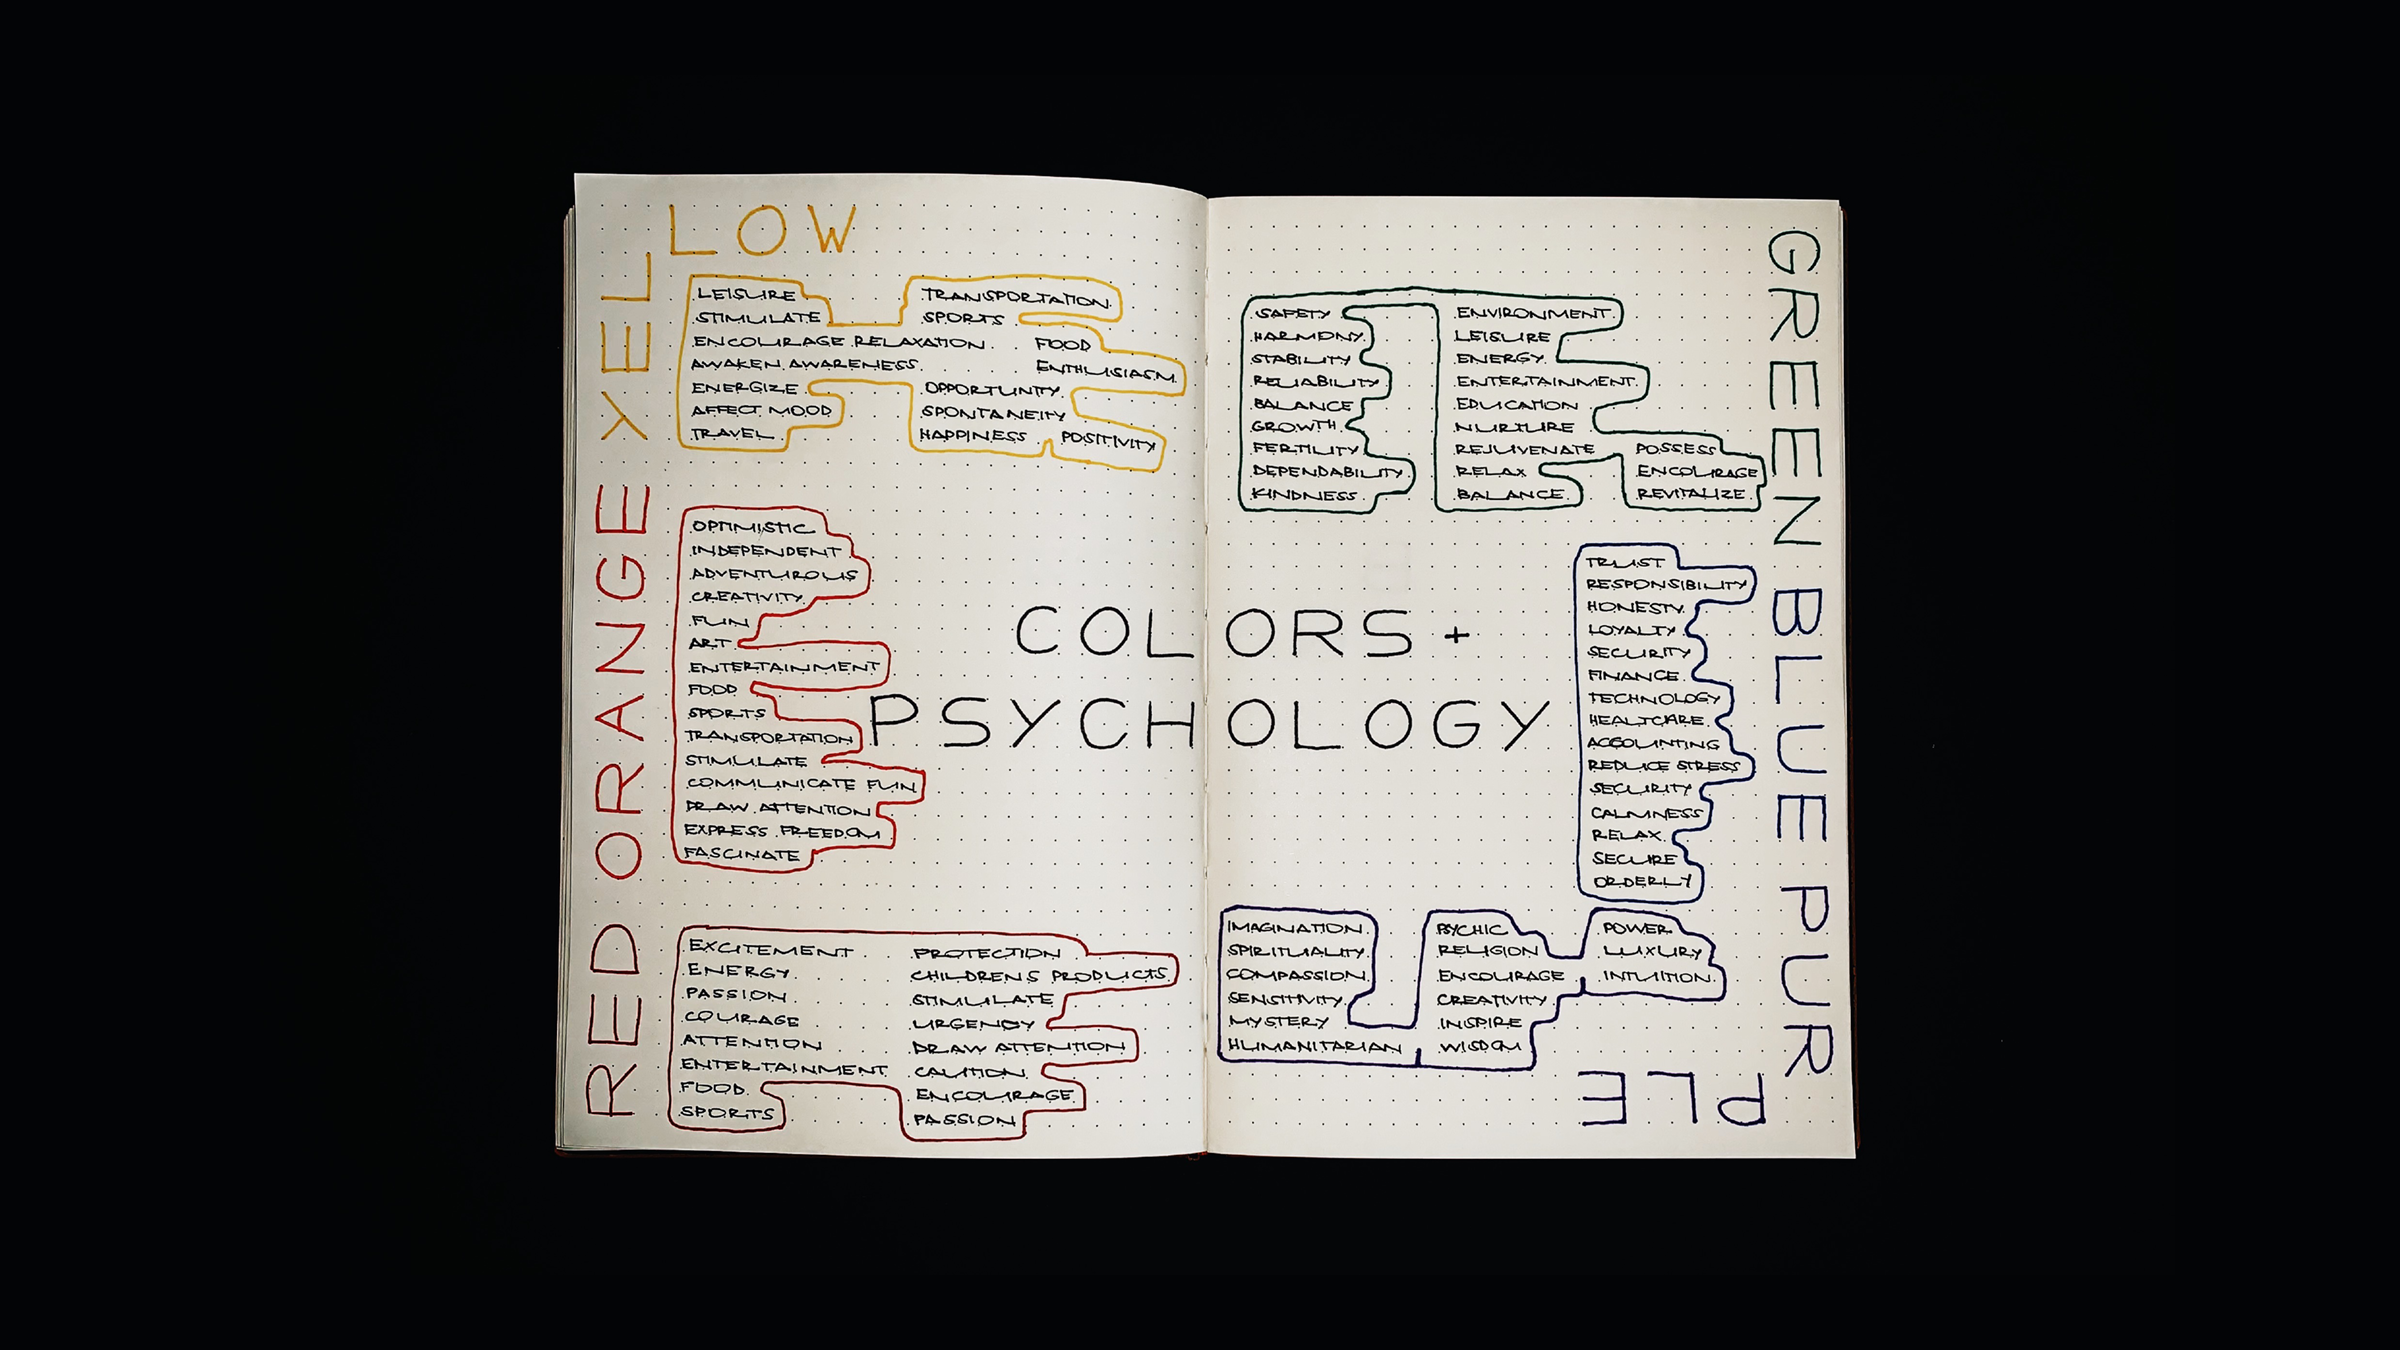 YELLOW
LEISURE
STIMULATE
ENCOURAGE RELAXATION
AWAKEN AWARENESS
ENERGIZE
AFFECT MOOD
TRAVEL
TRANSPORTATION
SPORTS
FOOD
ENTHUSIASM
OPPORTUNITY
SPONTANEITY
HAPPINESS
POSITIVITY
ORANGE
OPTIMISTIC
INDEPENDENT
ADVENTUROUS
CREATIVITY
FUN
ART
ENTERTAINMENT
FOOD
SPORTS
TRANSPORTATION
STIMULATE
COMMUNICATE FUN
DRAW ATTENTION
EXPRESS FREEDOM
FASCINATE
RED
EXCITEMENT
ENERGY
PASSION
COURAGE
ATTENTION
ENTERTAINMENT
FOOD
SPORTS
PROTECTION
CHILDRENS PRODUCTS
STIMULATE
URGENCY
DRAW ATTENTION
CAUTION
ENCOURAGE
PASSION
COLORS +
PSYCHOLOGY
GREEN
SAFETY
HARMONY
STABILITY
RELIABILITY
BALANCE
GROWTH
FERTILITY
DEPENDABILITY
KINDNESS
ENVIRONMENT
LEISURE
ENERGY
ENTERTAINMENT
EDUCATION
NURTURE
REJUVENATE
RELAX
BALANCE
POSSESS
ENCOURAGE
REVITALIZE
BLUE
TRUST
RESPONSIBILITY
HONESTY
LOYALTY
SECURITY
FINANCE
TECHNOLOGY
HEALTCARE
ACCOUNTING
REDUCE STRESS
SECURITY
CALMNESS
RELAX
SECURE
ORDERLY
PURPLE
IMAGINATION
SPIRITUALITY
COMPASSION
SENSITIVITY
MYSTERY
HUMANITARIAN
PSYCHIC
RELIGION
ENCOURAGE
CREATIVITY
INSPIRE
WISDOM
POWER
LUXURY
INTUITION